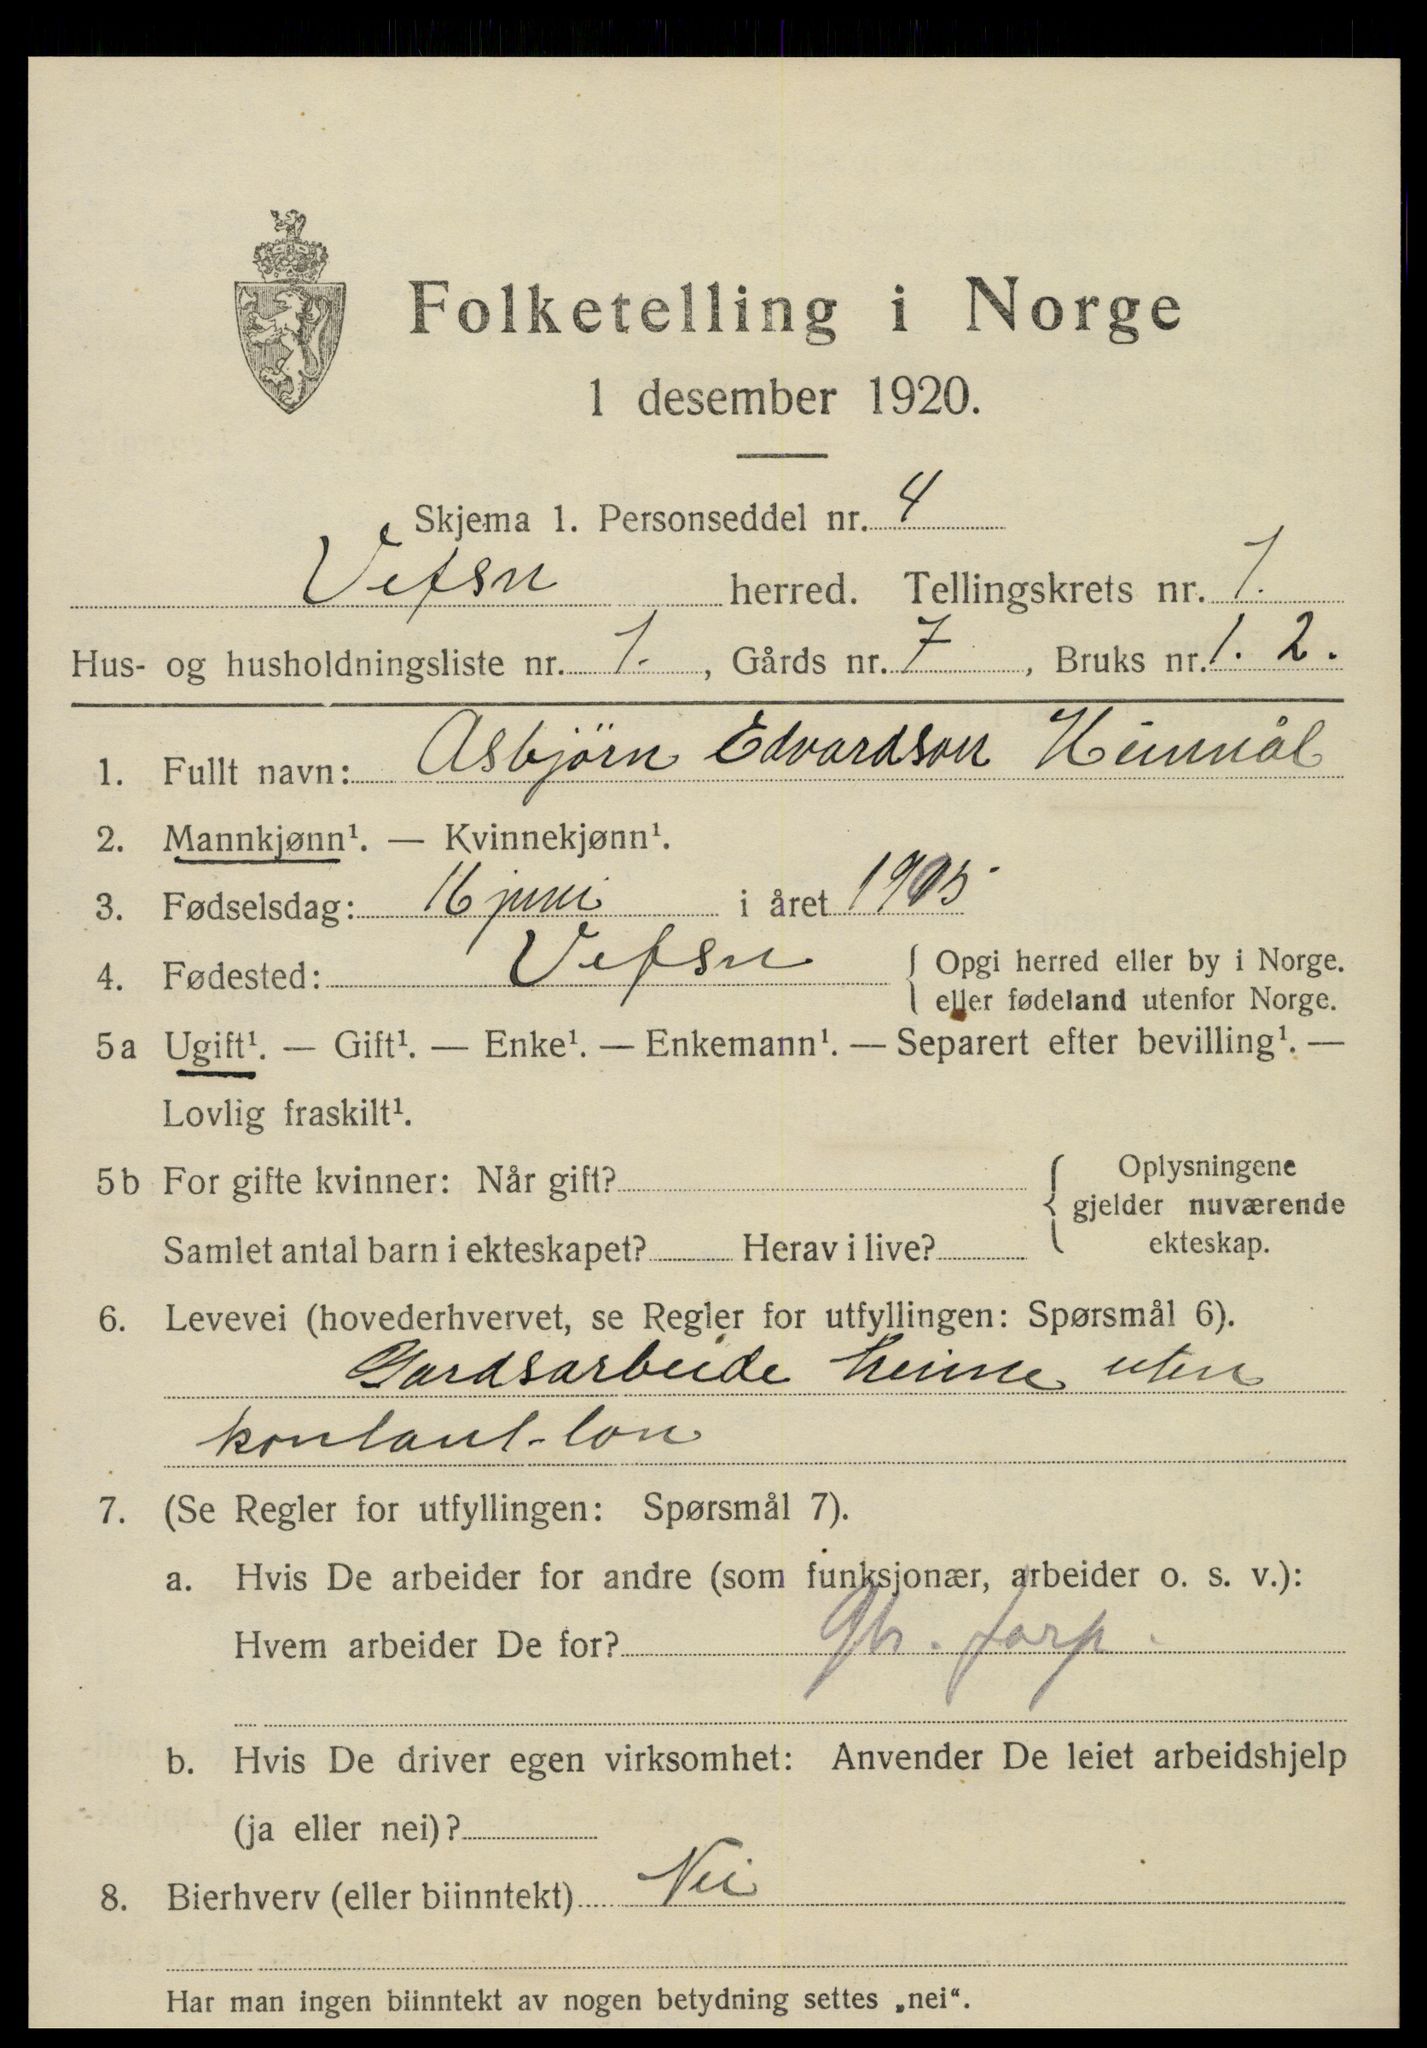 Folketelling i Norge
1 desember 1920.
Skjema 1. Personseddel nr. 4
Vefsn herred. Tellingskrets nr. 1.
Hus- og husholdningsliste nr. 1. , Gårds nr. 7 , Bruks nr. 1. 2.
1. Fullt navn: Asbjörn Edvardson Heimål
2. Mannkjønn¹. — Kvinnekjønn¹.
3. Fødselsdag: 16 juni i året 1905
4. Fødested: Vefsn { Opgi herred eller by i Norge.
eller fødeland utenfor Norge.
5a Ugift¹. — Gift¹. — Enke¹. — Enkemann¹. — Separert efter bevilling¹. —
Lovlig fraskilt¹.
5b For gifte kvinner: Når gift? { Oplysningene
gjelder nuværende
Samlet antal barn i ekteskapet? Herav i live? ekteskap.
6. Levevei (hovederhvervet, se Regler for utfyllingen: Spørsmål 6).
Gardsarbeide heime uten
kontant-lon
7. (Se Regler for utfyllingen: Spørsmål 7).
a. Hvis De arbeider for andre (som funksjonær, arbeider o. s. v.):
Hvem arbeider De for?
b. Hvis De driver egen virksomhet: Anvender De leiet arbeidshjelp
(ja eller nei)?
8. Bierhverv (eller biinntekt) Nei
Har man ingen biinntekt av nogen betydning settes „nei“.